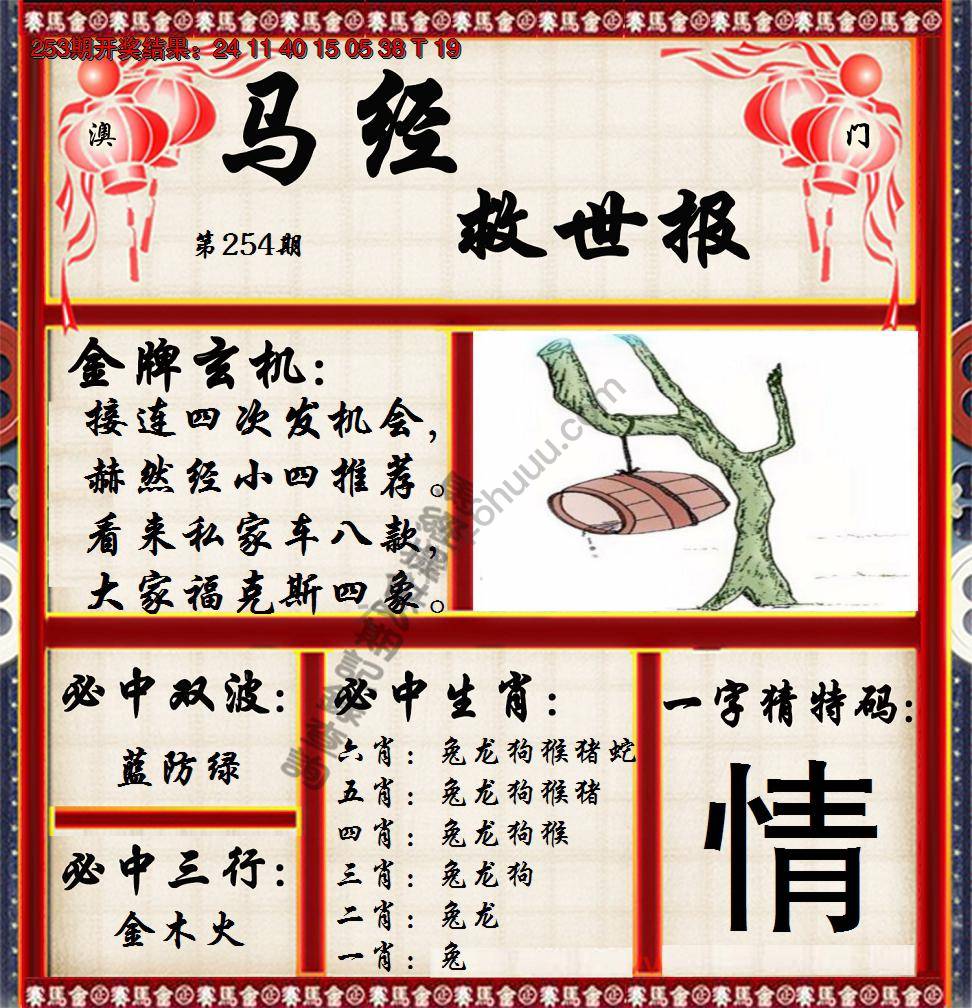 赛馬會
253期开奖结果：24 11 40 15 05 38 T 19
澳
门
马经
救世报
第254期
金牌玄机：
接连四次发机会，
赫然经小四推荐。
看来私家车八款，
大家福克斯四象。
必中双波：
蓝防绿
必中三行：
金木火
必中生肖：
六肖：兔龙狗猴猪蛇
五肖：兔龙狗猴猪
四肖：兔龙狗猴
三肖：兔龙狗
二肖：兔龙
一肖：兔
一字猜特码：
情